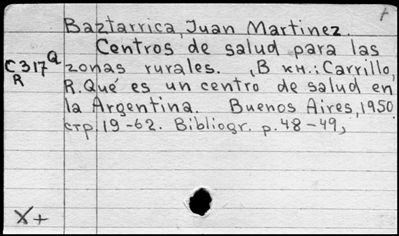 Baztarrica, Juan Martinez.
Centros de salud para las
C317Q zonas rurales. , В кн.: Carrillo,
R R. Qué es un centro de salud en
la Argentina. Buenos Aires, 1950,
стр. 19-62. Bibliogr. p. 48-49,
X+